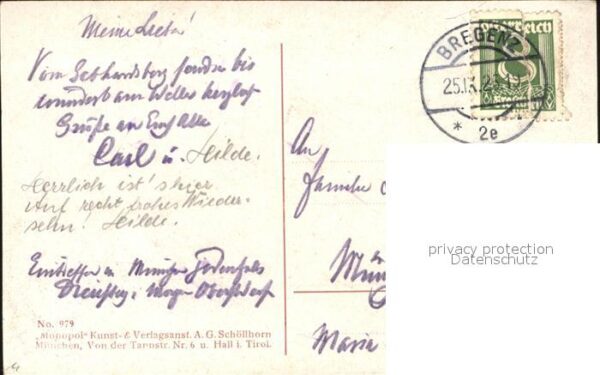 Meine Liesa!
Vom Gebhardsberg senden bis
herzlich
Grüße an Euch Alle
Carl u. Hilde.
Herrlich ist's hier
Auf recht frohes Wieder-
sehn! Hilde.
Eintreffen in München jedenfalls
Dienstag, Morgen Oberstdorf
No. 979
„Monopol" Kunst- & Verlagsanst. A. G. Schöllhorn
München, Von der Tannstr. Nr. 6 u. Hall i. Tirol.
BREGENZ
25.IX.
* 2e
Österreich
8
An
Familie
Mün
Maria
privacy protection
Datenschutz